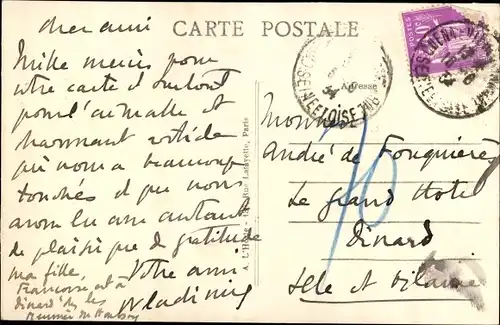 CARTE POSTALE
cher ami
Mille mercis pour
votre carte et surtout
pour l'aimable et
charmant article
qui nous a beaucoup
touchés et que nous
avons lu avec autant
de plaisir que de gratitude
Votre ami
Wladimir
ma fille,
Françoise est à
Dinard
Adresse
Monsieur
André de Fouquières
Le Grand Hotel
Dinard
Ille et Vilaine
70
A. L'H
Rue Lafayette, Paris
POSTES
SEINE ET OISE